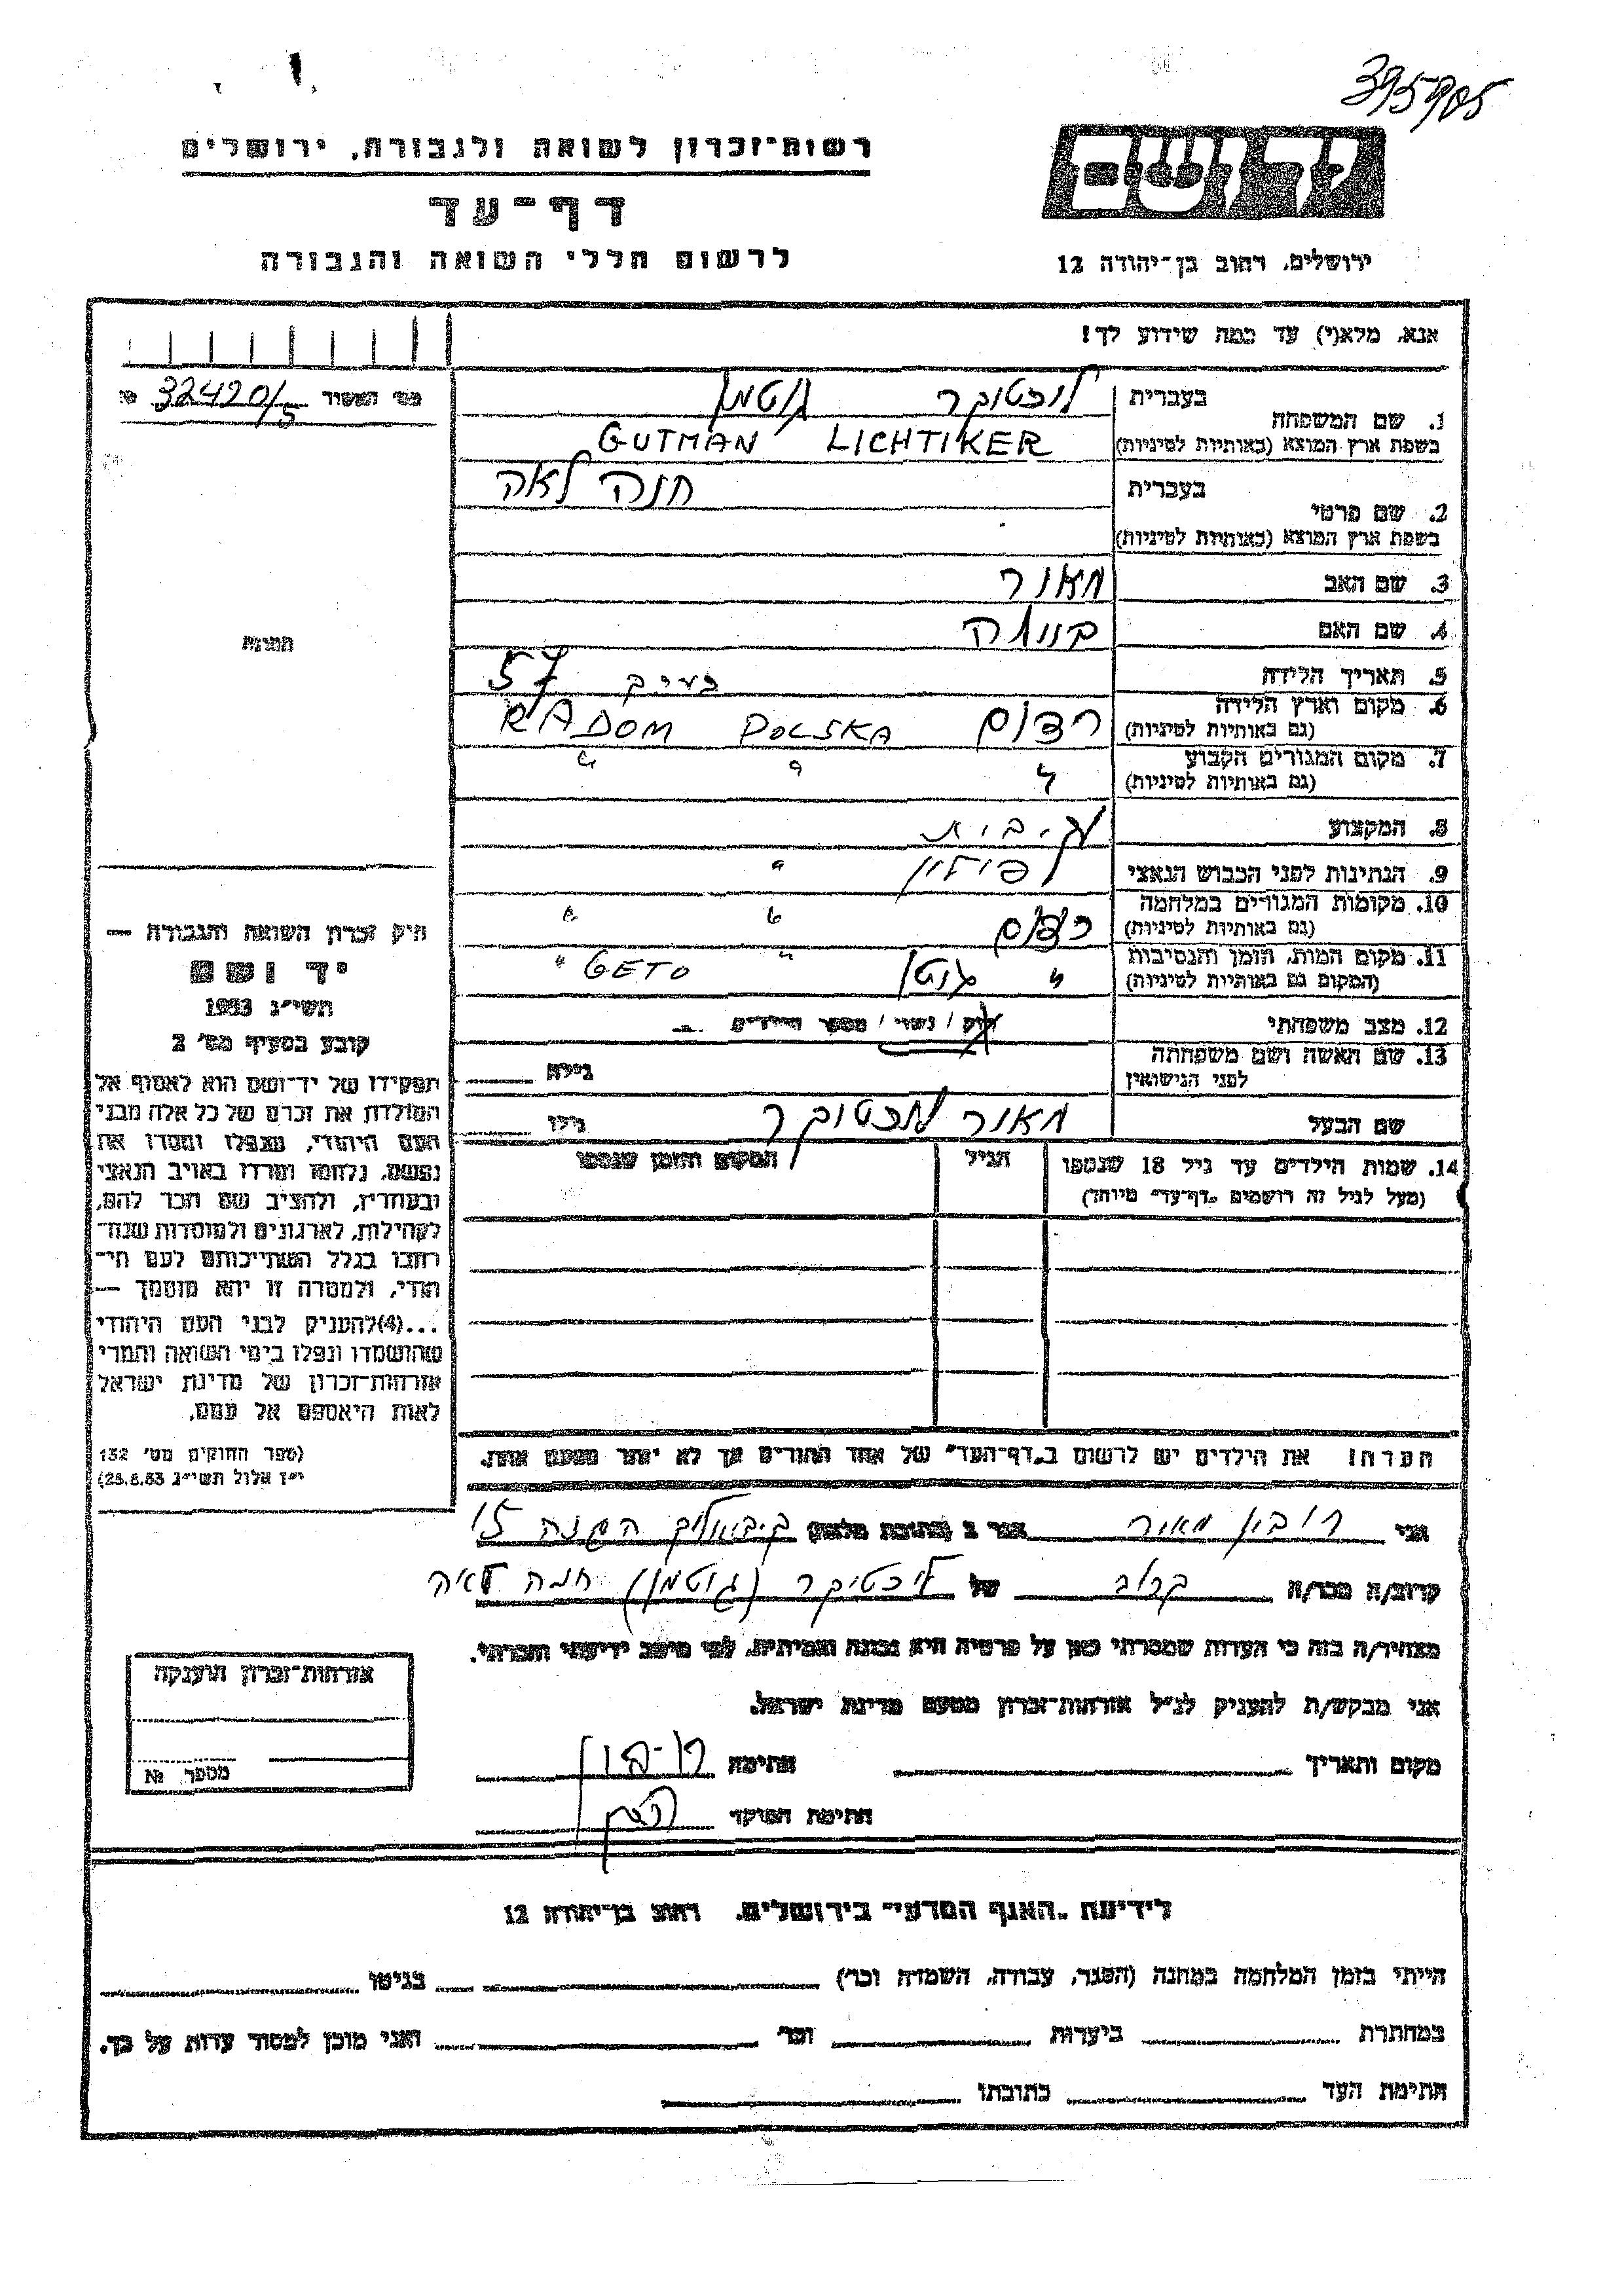 395905
רשות־זכרון לשואה ולגבורה, ירושלים
דף־עד
לרשום חללי השואה והגבורה
יד ושם
ירושלים, רחוב בן־יהודה 12
אנא, מלא(י) עד כמה שידוע לך!
32420/5
1. שם המשפחה
בעברית
גוטמן
בשפת ארץ המוצא (באותיות לטיניות)
GUTMAN LICHTIKER
2. שם פרטי
בעברית
חנה לאה
בשפת ארץ המוצא (באותיות לטיניות)
3. שם האב
מאור
4. שם האם
5. תאריך הלידה
57
6. מקום וארץ הלידה
(גם באותיות לטיניות)
רדום POLSKA RADOM
7. מקום המגורים הקבוע
(גם באותיות לטיניות)
" " "
8. המקצוע
9. הנתינות לפני הכבוש הנאצי
10. מקומות המגורים במלחמה
(גם באותיות לטיניות)
רדום " "
11. מקום המות, הזמן והנסיבות
(המקום גם באותיות לטיניות)
" גטו " GETO "
12. מצב משפחתי
רוק / נשוי / מספר הילדים
13. שם האשה ושם משפחתה
לפני הנישואין
גילה
שם הבעל
מאור
גילו
14. שמות הילדים עד גיל 18 שנספו
(מעל לגיל זה רושמים "דף־עד" מיוחד)
הגיל
המקום והזמן שנספו
הערה! את הילדים יש לרשום ב"דף־העד" של אחד ההורים אך לא יותר מפעם אחת.
תמונה
חיק זכרון השואה והגבורה —
יד ושם
תשי"ג 1953
קובע בסעיף מס' 2
תפקידו של יד־ושם הוא לאסוף אל
המולדת את זכרם של כל אלה מבני
העם היהודי, שנפלו ומסרו את
נפשם, נלחמו ומרדו באויב הנאצי
ובעוזריו, ולהציב שם וזכר להם,
לקהילות, לארגונים ולמוסדות שנח־
רבו בגלל השתייכותם לעם הי־
הודי, ולמטרה זו יהא מוסמך —
...(4)להעניק לבני העם היהודי
שהושמדו ונפלו בימי השואה והמרי
אזרחות־זכרון של מדינת ישראל
לאות היאספם אל עמם.
(ספר החוקים מס' 132
י"ז אלול תשי"ג 28.8.53)
אני רובין מאיר הגר ב (כתובת מלאה) 15
קרוב/ה מכר/ה קרוב של ליכטיקר (גוטמן) חנה לאה
מצהיר/ה בזה כי העדות שמסרתי כאן על פרטיה היא נכונה ואמיתית, לפי מיטב ידיעתי והכרתי.
אני מבקש/ת להעניק לנ"ל אזרחות־זכרון מטעם מדינת ישראל.
מקום ותאריך חתימה
חתימת הפוקד
אזרחות־זכרון הוענקה
מספר №
לידיעת "האגף המדעי" בירושלים, רחוב בן־יהודה 12
הייתי בזמן המלחמה במחנה (הסגר, עבודה, השמדה וכו') בגיטו
במחתרת ביערות וכו' ואני מוכן למסור עדות על כך.
חתימת העד כתובתו